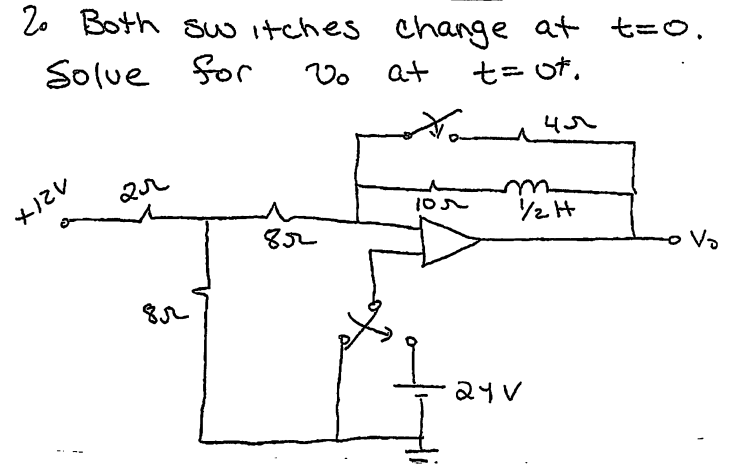 2. Both switches change at t=0.
Solve for v₀ at t=0⁺.
4Ω
+12V
2Ω
10Ω
1/2 H
8Ω
V₀
8Ω
24V